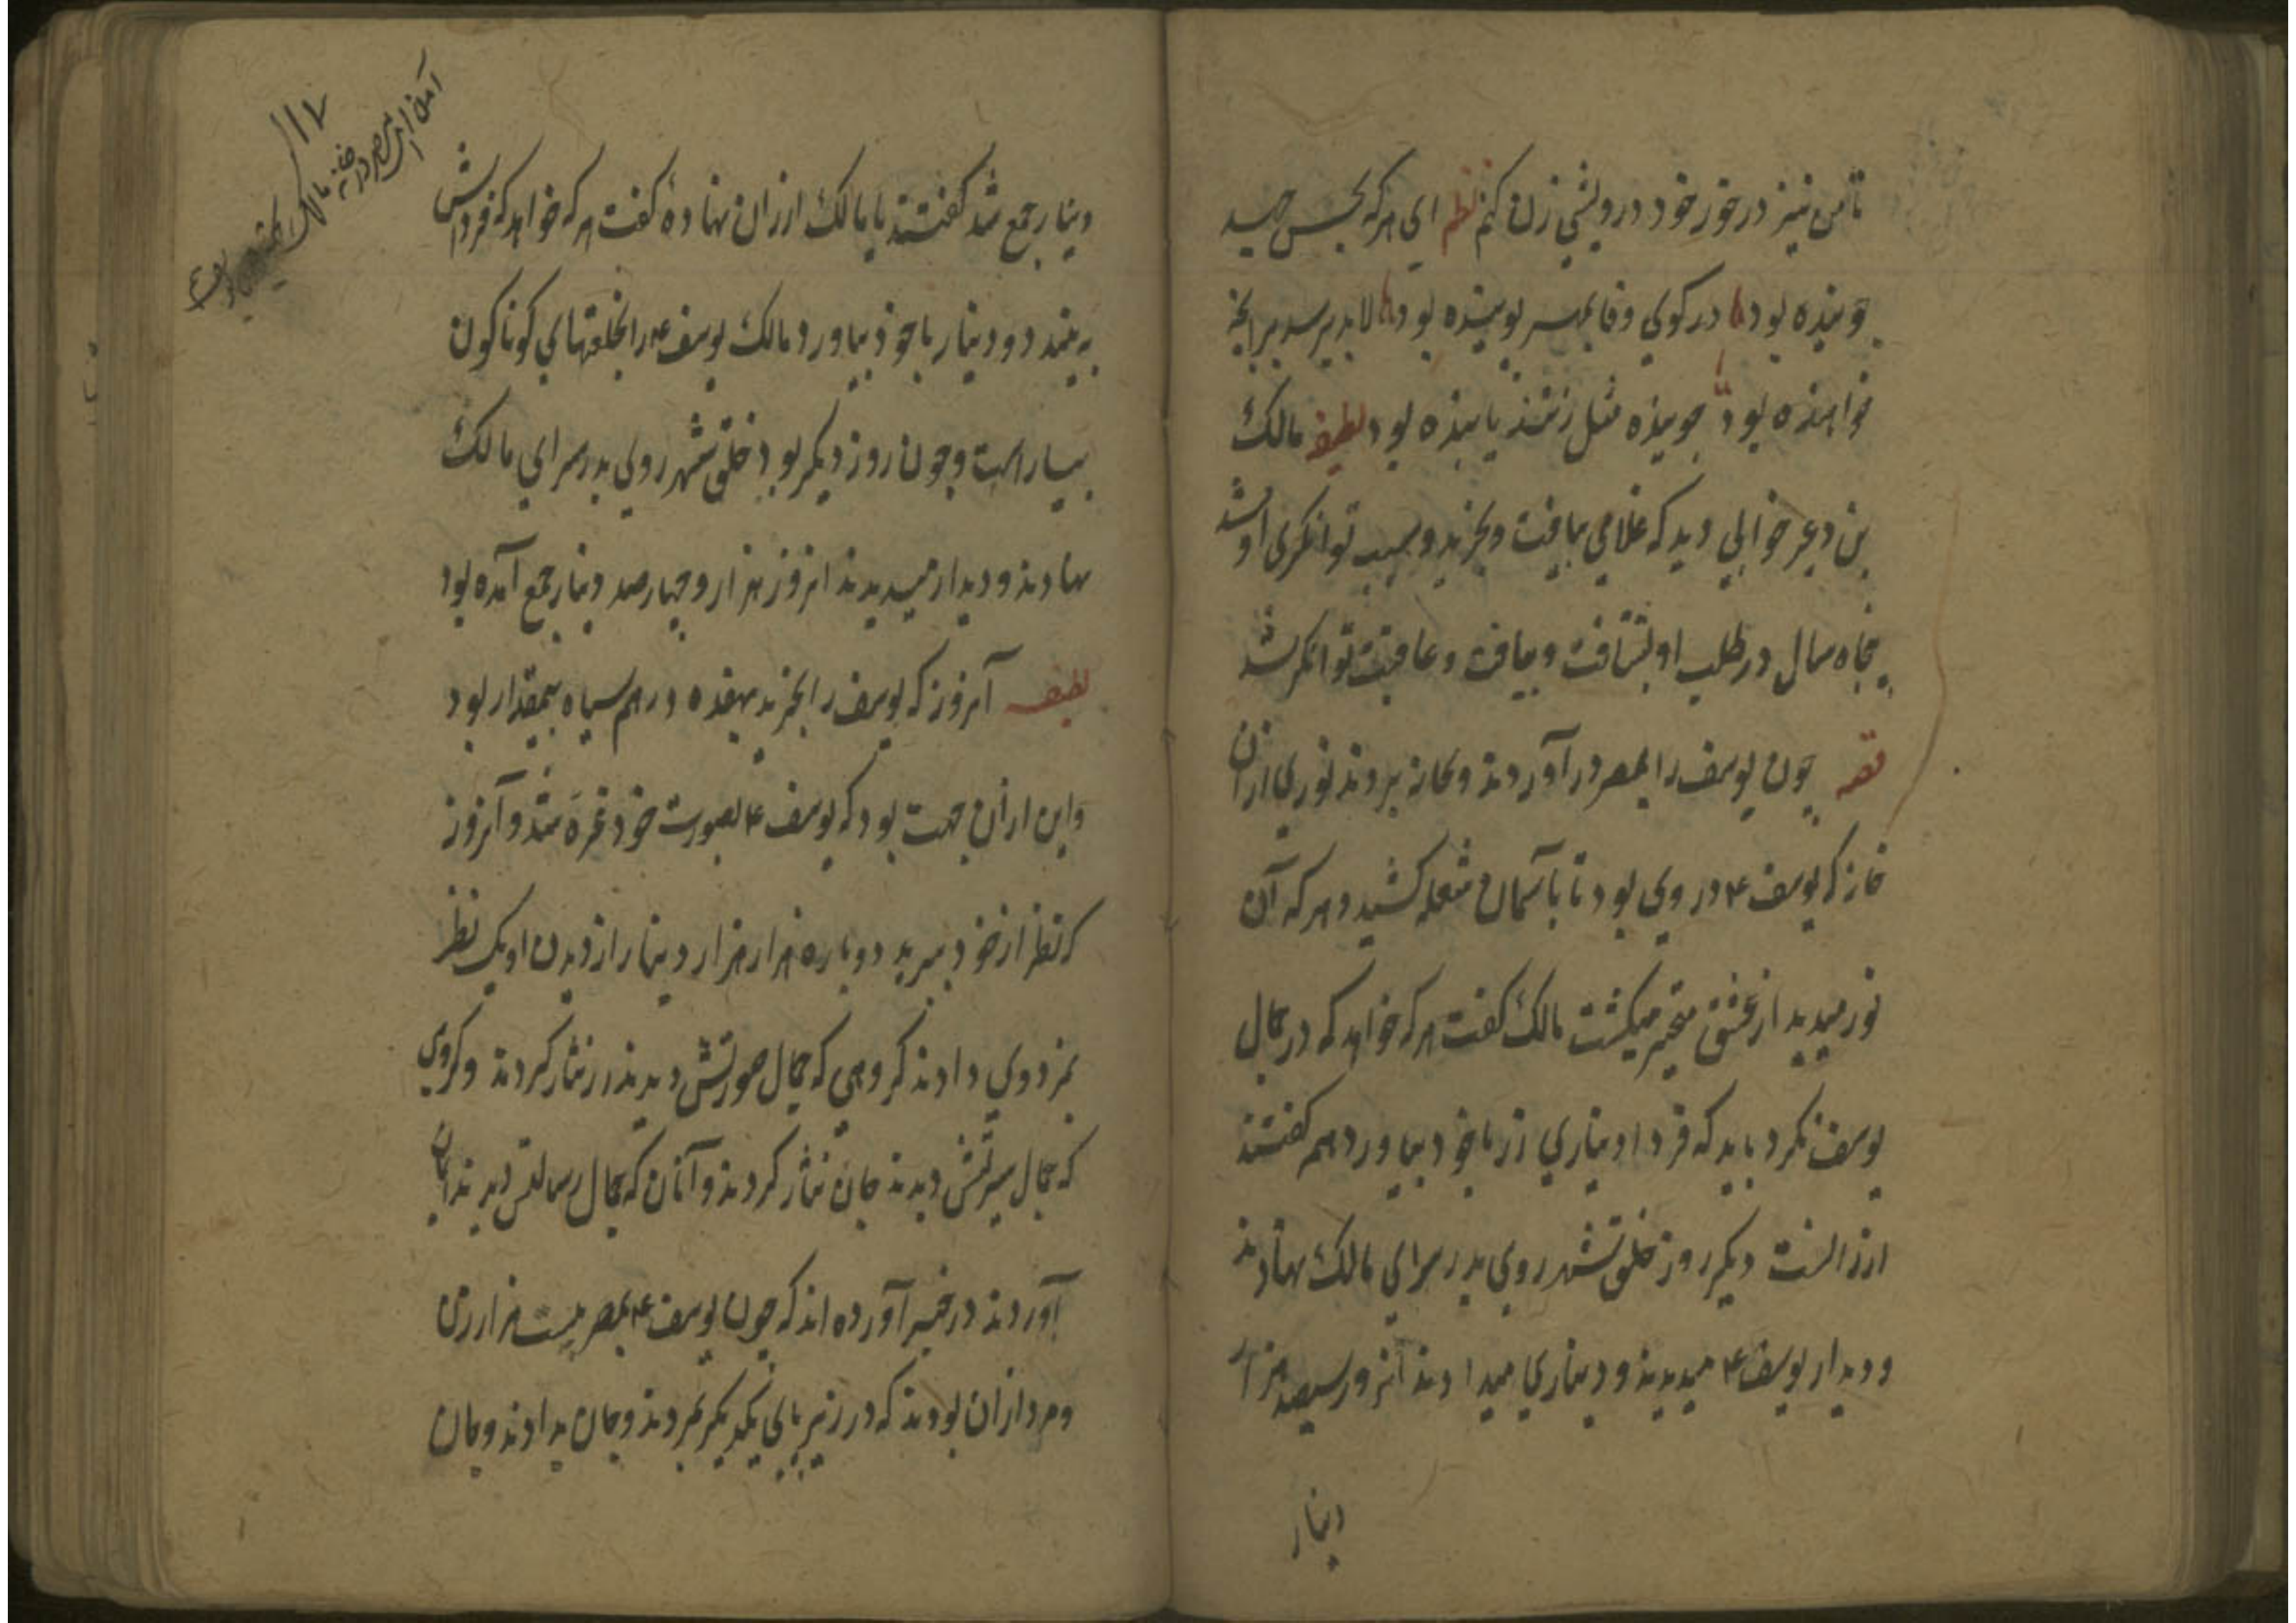 تا من نیز در خور خود درویشی زن کنم نظم ای هر که بجس جسد
پوینده بود در کوی وفا بسر پوینده بود لابد برسد بر آنچه
خواهنده بود جوینده مثل زنند یابنده بود لطیفه مالک
بن دعر خوابی دید که غلامی بیافت و بخرید و سبب توانکری او شد
پنجاه سال در طلب او بشتافت و بیافت و عاقبت توانکر شد
قصه چون یوسف را بمصر در آوردند و بخانه بردند نوری ازان
خانه که یوسف ع در وی بود تا باسمان شعله کشید و هر که آن
نور میدید از عشق متحیر میکشت مالک کفت هر که خواهد که در جمال
یوسف نکرد باید که فردا دیناری زر با خود بیاورد همه کفتند
ارزانست دیکر روز خلق شهر روی بدر سرای مالک نهادند
و دیدار یوسف ع میدیدند و دیناری میدادند آنروز سیصد هزار
دینار
۱۱۷
دینار جمع شد کفتند یا مالک ارزان نهاده کفت هر که خواهد که فرداش
به بیند دو دینار با خود بیاورد مالک یوسف ع را بخلعتهای کوناکون
بیاراست و چون روز دیکر بود خلق شهر روی بدر سرای مالک
نهادند و دیدار میدیدند انروز هزار و چهارصد دینار جمع آمده بود
لطیفه آنروز که یوسف را بخریدند بهفده درهم سیاه بیمقدار بود
و این ازان جهت بود که یوسف ع بصورت خود غره شد و آنروز
که نظر از خود ببرید دوباره هزار هزار دینار از دیدن او یک نظر
بمزدوی دادند کروهی که جمال صورتش دیدند زر نثار کردند و کروهی
که جمال سیرتش دیدند جان نثار کردند و آنان که جمال رسالتش دیدند ایمان
آوردند در خبر آورده اند که چون یوسف ع بمصر بیست هزار زن
و مرد ازان بودند که در زیر پای یکدیکر بمردند و جان بدادند و جان